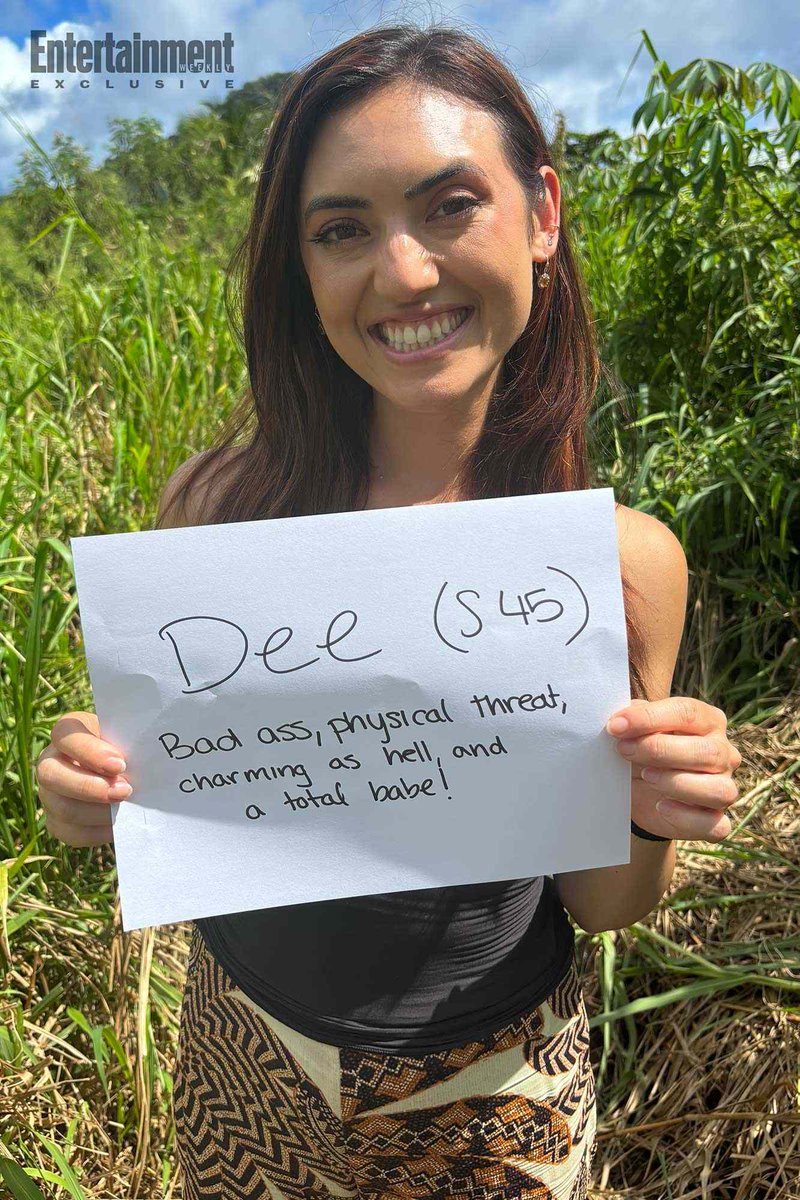 Entertainment
WEEKLY
EXCLUSIVE
Dee (S45)
Bad ass, physical threat,
charming as hell, and
a total babe!